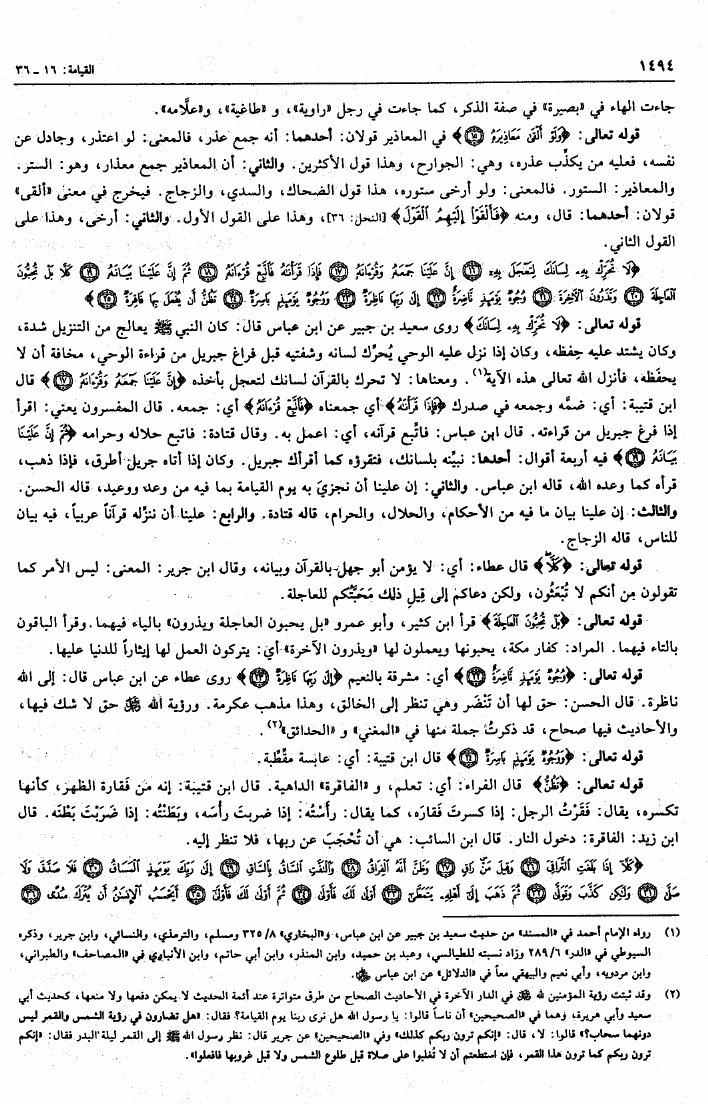 ١٤٩٤ القيامة: ١٦ ـ ٣٦
جاءت الهاء في «بصيرة» في صفة الذكر، كما جاءت في رجل «راوية»، و «طاغية»، و«علَّامه».
قوله تعالى: ﴿وَلَوْ أَلْقَىٰ مَعَاذِيرَهُ ۝١٥﴾ في المعاذير قولان: أحدهما: أنه جمع عذر، فالمعنى: لو اعتذر، وجادل عن
نفسه، فعليه من يكذِّب عذره، وهي: الجوارح، وهذا قول الأكثرين. والثاني: أن المعاذير جمع معذار، وهو: الستر.
والمعاذير: الستور. فالمعنى: ولو أرخى ستوره، هذا قول الضحاك، والسدي، والزجاج. فيخرج في معنى «ألقى»
قولان: أحدهما: قال، ومنه ﴿فَأَلْقَوْا إِلَيْهِمُ الْقَوْلَ﴾ [النحل: ٣٦]، وهذا على القول الأول. والثاني: أرخى، وهذا على
القول الثاني.
﴿لَا تُحَرِّكْ بِهِ لِسَانَكَ لِتَعْجَلَ بِهِ ۝١٦ إِنَّ عَلَيْنَا جَمْعَهُ وَقُرْءَانَهُ ۝١٧ فَإِذَا قَرَأْنَاهُ فَاتَّبِعْ قُرْءَانَهُ ۝١٨ ثُمَّ إِنَّ عَلَيْنَا بَيَانَهُ ۝١٩ كَلَّا بَلْ تُحِبُّونَ
الْعَاجِلَةَ ۝٢٠ وَتَذَرُونَ الْآخِرَةَ ۝٢١ وُجُوهٌ يَوْمَئِذٍ نَّاضِرَةٌ ۝٢٢ إِلَىٰ رَبِّهَا نَاظِرَةٌ ۝٢٣ وَوُجُوهٌ يَوْمَئِذٍ بَاسِرَةٌ ۝٢٤ تَظُنُّ أَن يُفْعَلَ بِهَا فَاقِرَةٌ ۝٢٥﴾
قوله تعالى: ﴿لَا تُحَرِّكْ بِهِ لِسَانَكَ﴾ روى سعيد بن جبير عن ابن عباس قال: كان النبي ﷺ يعالج من التنزيل شدة،
وكان يشتد عليه حِفظه، وكان إذا نزل عليه الوحي يُحرِّك لسانه وشفتيه قبل فراغ جبريل من قراءة الوحي، مخافة أن لا
يحفَظه، فأنزل الله تعالى هذه الآية(١). ومعناها: لا تحرك بالقرآن لسانك لتعجل بأخذه ﴿إِنَّ عَلَيْنَا جَمْعَهُ وَقُرْءَانَهُ ۝١٧﴾ قال
ابن قتيبة: أي: ضمَّه وجمعه في صدرك ﴿فَإِذَا قَرَأْنَاهُ﴾ أي جمعناه ﴿فَاتَّبِعْ قُرْءَانَهُ﴾ أي: جمعه. قال المفسرون يعني: اقرأ
إذا فرغ جبريل من قراءته. قال ابن عباس: فاتَّبع قرآنه، أي: اعمل به. وقال قتادة: فاتبع حلاله وحرامه ﴿ثُمَّ إِنَّ عَلَيْنَا
بَيَانَهُ ۝١٩﴾ فيه أربعة أقوال: أحدها: نبيِّنه بلسانك، فتقرؤه كما أقرأك جبريل. وكان إذا أتاه جبريل أطرق، فإذا ذهب،
قرأه كما وعده الله، قاله ابن عباس. والثاني: إن علينا أن نجزيَ به يوم القيامة بما فيه من وعد ووعيد، قاله الحسن.
والثالث: إن علينا بيان ما فيه من الأحكام، والحلال، والحرام، قاله قتادة. والرابع: علينا أن ننزِّله قرآناً عربياً، فيه بيان
للناس، قاله الزجاج.
قوله تعالى: ﴿كَلَّا﴾ قال عطاء: أي: لا يؤمن أبو جهل بالقرآن وبيانه، وقال ابن جرير: المعنى: ليس الأمر كما
تقولون مِن أنكم لا تُبْعَثُون، ولكن دعاكم إلى قِيلِ ذلك مَحَبَّتُكم للعاجلة.
قوله تعالى: ﴿بَلْ تُحِبُّونَ الْعَاجِلَةَ﴾ قرأ ابن كثير، وأبو عمرو «بل يحبون العاجلة ويذرون» بالياء فيهما. وقرأ الباقون
بالتاء فيهما. المراد: كفار مكة، يحبونها ويعملون لها «ويذرون الآخرة» أي: يتركون العمل لها إيثاراً للدنيا عليها.
قوله تعالى: ﴿وُجُوهٌ يَوْمَئِذٍ نَّاضِرَةٌ ۝٢٢﴾ أي: مشرقة بالنعيم ﴿إِلَىٰ رَبِّهَا نَاظِرَةٌ ۝٢٣﴾ روى عطاء عن ابن عباس قال: إلى الله
ناظرة. قال الحسن: حق لها أن تَنْضَر وهي تنظر إلى الخالق، وهذا مذهب عكرمة. ورؤية الله ﷿ حق لا شك فيها،
والأحاديث فيها صحاح، قد ذكرتُ جملة منها في «المغني» و «الحدائق»(٢).
قوله تعالى: ﴿وَوُجُوهٌ يَوْمَئِذٍ بَاسِرَةٌ ۝٢٤﴾ قال ابن قتيبة: أي: عابسة مقَطِّبة.
قوله تعالى: ﴿تَظُنُّ﴾ قال الفراء: أي: تعلم، و «الفاقرة» الداهية. قال ابن قتيبة: إنه من فَقارة الظهر، كأنها
تكسره، يقال: فَقَرْتُ الرجل: إذا كسرتَ فَقارَه، كما يقال: رأَسْتُه: إذا ضربتَ رأسَه، وبَطَنْتُه: إذا ضَرَبْتَ بَطْنَه. قال
ابن زيد: الفاقرة: دخول النار. قال ابن السائب: هي أن تُحْجَبَ عن ربها، فلا تنظر إليه.
﴿كَلَّا إِذَا بَلَغَتِ التَّرَاقِيَ ۝٢٦ وَقِيلَ مَنْ رَاقٍ ۝٢٧ وَظَنَّ أَنَّهُ الْفِرَاقُ ۝٢٨ وَالْتَفَّتِ السَّاقُ بِالسَّاقِ ۝٢٩ إِلَىٰ رَبِّكَ يَوْمَئِذٍ الْمَسَاقُ ۝٣٠ فَلَا صَدَّقَ وَلَا
صَلَّىٰ ۝٣١ وَلَٰكِن كَذَّبَ وَتَوَلَّىٰ ۝٣٢ ثُمَّ ذَهَبَ إِلَىٰ أَهْلِهِ يَتَمَطَّىٰ ۝٣٣ أَوْلَىٰ لَكَ فَأَوْلَىٰ ۝٣٤ ثُمَّ أَوْلَىٰ لَكَ فَأَوْلَىٰ ۝٣٥ أَيَحْسَبُ الْإِنسَانُ أَن يُتْرَكَ سُدًى ۝٣٦
(١) رواه الإمام أحمد في «المسند» من حديث سعيد بن جبير عن ابن عباس، و«البخاري» ٨/ ٣٢٥ ومسلم، والترمذي، والنسائي، وابن جرير، وذكره
السيوطي في «الدر» ٦/ ٢٨٩ وزاد نسبته للطيالسي، وعبد بن حميد، وابن المنذر، وابن أبي حاتم، وابن الأنباري في «المصاحف» والطبراني،
وابن مردويه، وأبي نعيم والبيهقي معاً في «الدلائل» عن ابن عباس ﵁.
(٢) وقد ثبتت رؤية المؤمنين لله ﷿ في الدار الآخرة في الأحاديث الصحاح من طرق متواترة عند أئمة الحديث لا يمكن دفعها ولا منعها، كحديث أبي
سعيد وأبي هريرة، وهما في «الصحيحين» أن ناساً قالوا: يا رسول الله هل نرى ربنا يوم القيامة؟ فقال: «هل تضارون في رؤية الشمس والقمر ليس
دونهما سحاب؟» قالوا: لا، قال: «إنكم ترون ربكم كذلك» وفي «الصحيحين» عن جرير قال: نظر رسول الله ﷺ إلى القمر ليلة البدر فقال: «إنكم
ترون ربكم كما ترون هذا القمر، فإن استطعتم أن لا تُغلبوا على صلاة قبل طلوع الشمس ولا قبل غروبها فافعلوا».